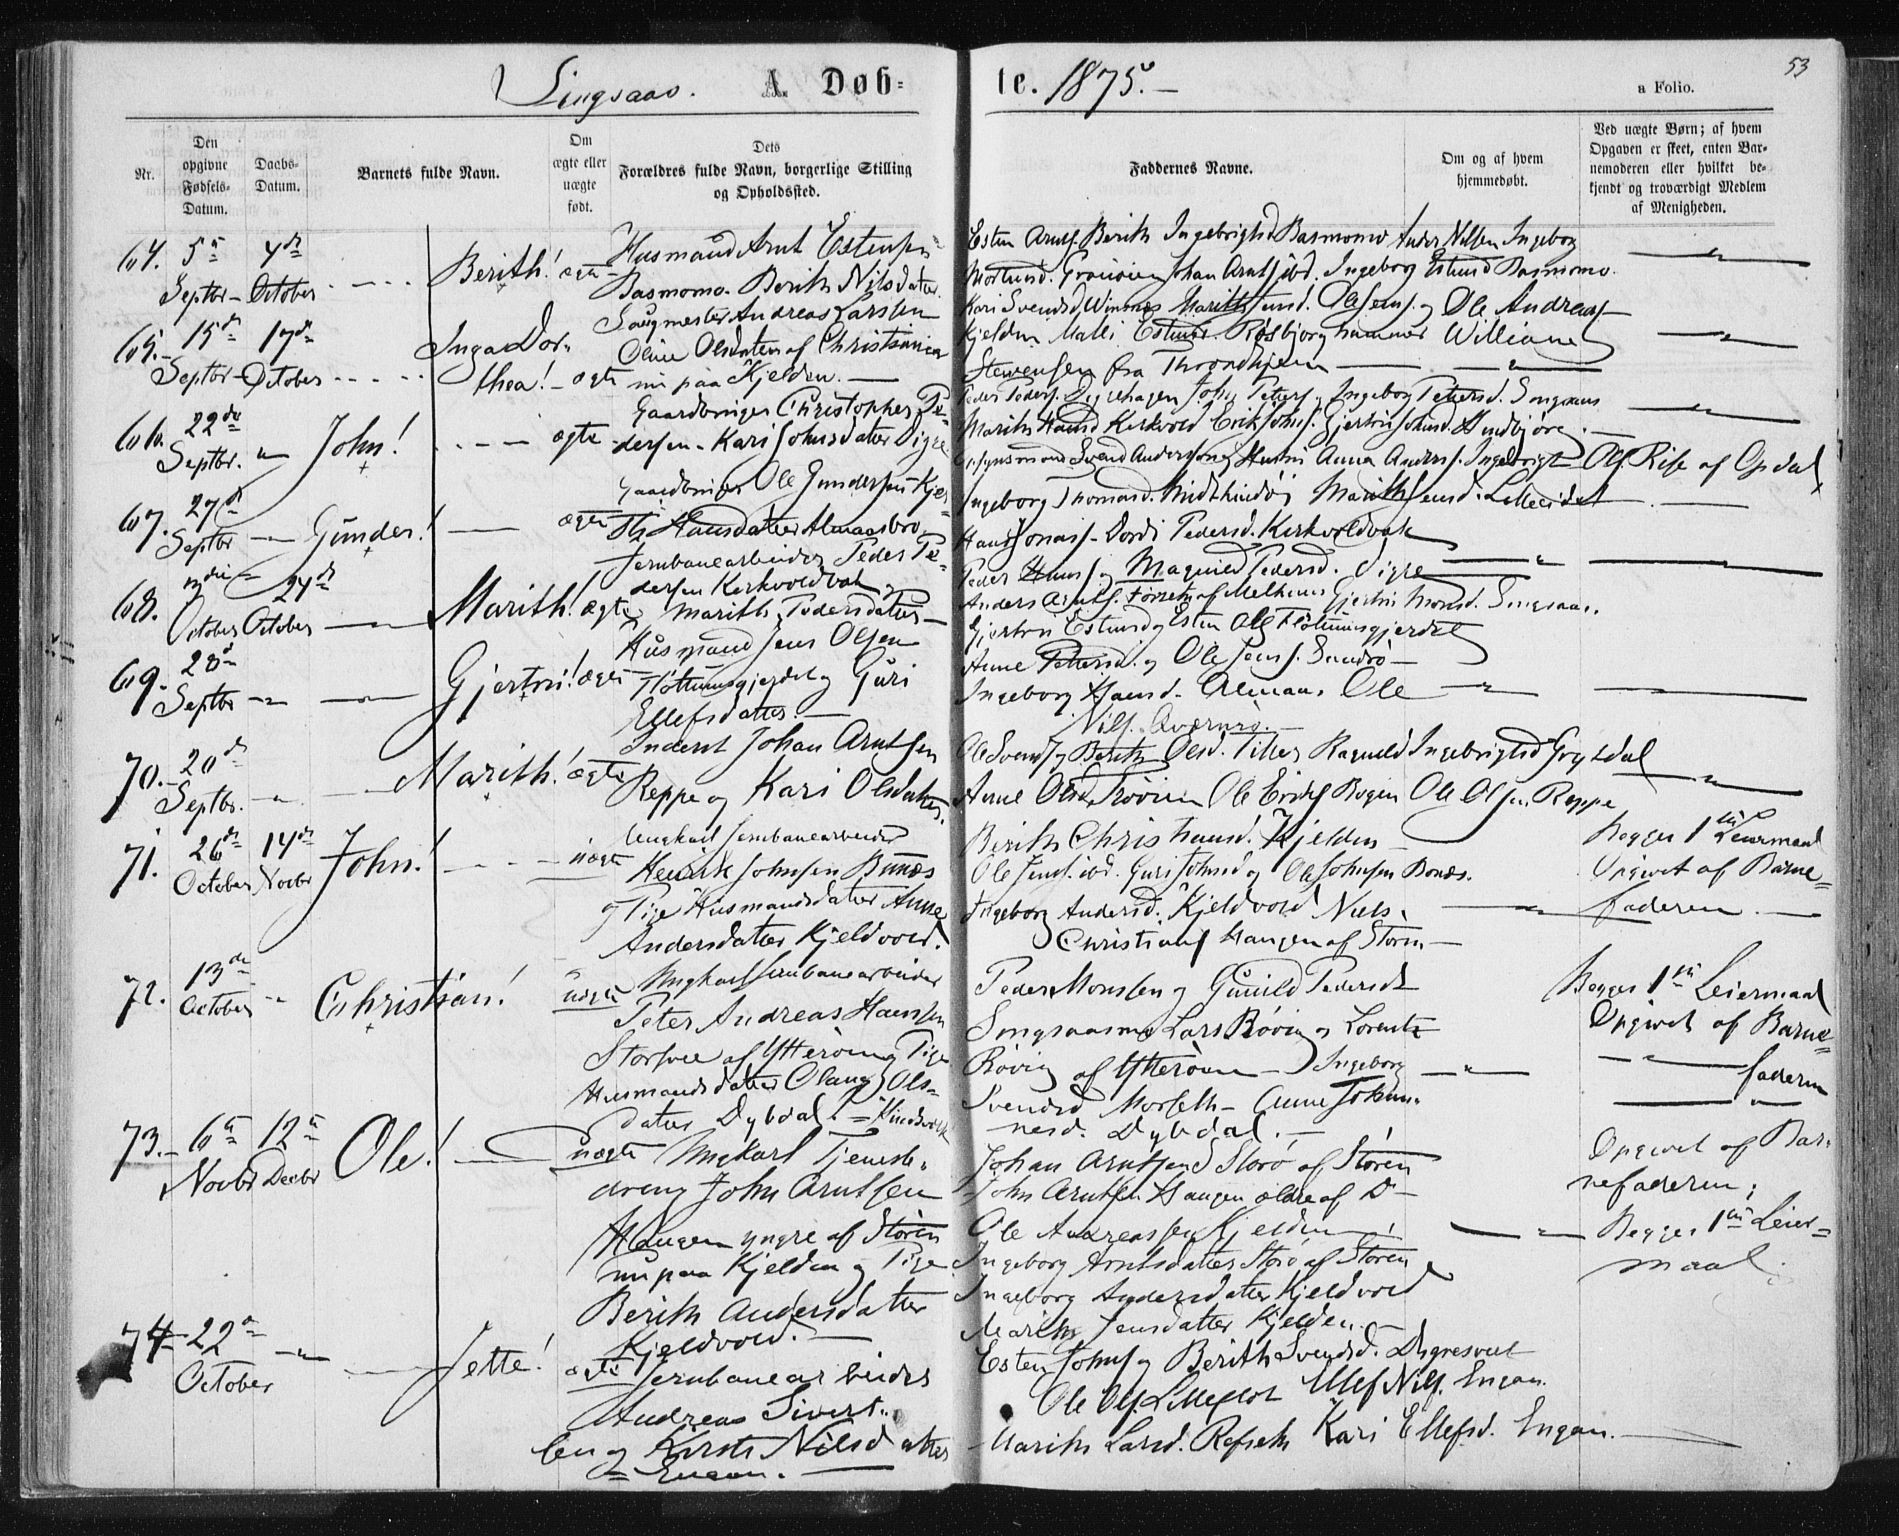 Singsaas. A. Døb-
te. 1875.
53
a Folio.
Nr.
Den opgivne Fødsels-Datum.
Daabs-Datum.
Barnets fulde Navn.
Om ægte eller uægte født.
Dets Forældres fulde Navn, borgerlige Stilling og Opholdssted.
Faddernes Navne.
Om og af hvem hjemmedøbt.
Ved uægte Børn; af hvem Opgaven er skeet, enten Barnemoderen eller hvilket bekjendt og troværdigt Medlem af Menigheden.
64. 5te Septbr 4de October Berith! ægte
Husmand Arnt Estensen
Basmomo. Berith Nilsdatter
Esten Arntf. Berith Ingebrigtsd Basmomo Anders Nilsen Ingeborg
Johan Arntf. ibd. Ingeborg Estensd Basmomo.
65. 15de Septbr 17de October Inga Dorthea! ægte
Saugmester Andreas Larssen
Oline Olsdatter af Christiania
nu paa Kjelden.
Kari Svendsd Winsnes Marith Jensd. Ole Jensf. og Ole Andreasf
Kjelden Malli Røsbjorg hammer William
Stevensen fra Throndhjem
66. 22de Septbr. John! ægte
Gaardbruger Christopher Pe-
dersen. Kari Johnsdatter Digre
Peder Pedersf. Digrehagen John Petersf og Ingeborg Petersd. Singsaas
Marith Hansd Kirkvold Erik Johnsf. Gjertru Johnsd. Hindbjørg.
67. 27de Septbr Gunder! ægte
Gaardbruger Ole Gundersen Kjer-
sti Hansdatter Almaasbro
Svend Andersen og Hustru Anna Andersd. Ingebrigt Olsf. Rise af Opdal
Ingeborg Thomasd. Marith Jensd.
68. October 24de October Marith! ægte
Jernbanearbeider Peder Pe-
dersen Kirkvoldvak og
Marith Pedersdatter
Hans Jonasf. Dordi Pedersd. Kirkvoldvak
Peder Hansf og Magnild Pedersd. Digre
Anders Arntsf. af Melhuus Gjertru Monsd. Singsaas.
69. 28de Septbr Gjertru! ægte
Husmand Jens Olsen
Flöttumsgjerdet og Guri
Ellefsdatter.
Gjertru Estensd og Esten Olsf Flöttumsgjerdet
Anne Pettersd. og Ole Jensf.
Ingeborg Hansd. Almaas Ole
Nilsf.
70. 20de Septbr. Marith! ægte
Inderst Johan Arntsen
Reppe og Kari Olsdatter.
Ole Svendsf og Berith Olsd. Tiller Ragnild Ingebrigtsd Grytdal
Arne Olsd. Ole Eriksf Bogen Ole Olsen Reppe
71. 26de October 14de Novbr John! uægte
Ungkarl Jernbanearbeider
Henrik Johnsen Bonæs
og Pige Husmandsdatter Anne
Andersdatter Kjeldvold.
Berith Christiansd. Kjelden
Ole Jensf. ibd. Guri Johnsd og Ole Johnsen Bonæs.
Ingeborg Andersd. Kjeldvold Niels
Christiansf Haugen af Støren
Begges 1ste Leiermaal
Opgivet af Barne-
faderen.
72. 13de October Christian! uægte
Ungkarl Jernbanearbeider
Peter Andreas Hansen
af Ytterøen og Pige
Husmandsdatter Olaug Ols-
datter Dybdal.
Peder Monsen og Gunild Pedersd
Singsaasmo Lars Røvig og Lorentz
Røvig af Ytterøen Ingeborg
Svendsd Morseth Anne Johan-
nesd. Dybdal.
Begges 1ste Leiermaal
Opgivet af Barne-
faderen
73. 6te Novbr 12te Decbr Ole! uægte
Ungkarl Tjeneste-
dreng John Arntsen
Haugen yngre af Støren
nu paa Kjelden og Pige
Berith Andersdatter
Kjeldvold.
Johan Arntsen Storø af Støren
John Arntsen Haugen ældre af D
Ole Andreassen Kjelden
Ingeborg Arntsdatter Storø af Støren
Ingeborg Andersdatter Kjeldvold
Marith Jensdatter Kjelden.
Opgivet af Bar-
nefaderen;
Begges 1ste Leier-
maal
74. 22de October Jette! ægte
Jernbanearbeider
Andreas Sivert-
sen og Kirsti Nilsdatter
Engan.
Esten Johnsf og Berith Svendsd. Digresvedt
Ole Olsf. Ellef Nilsf. Engan.
Marith Larsd. Refseth Kari Ellefsd. Engan.